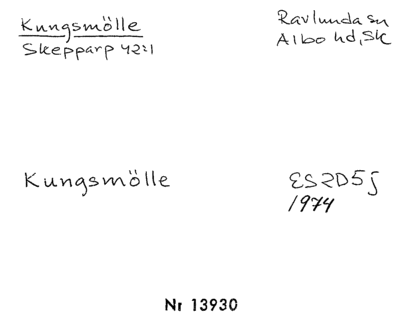 Kungsmölle
Skepparp 42:1
Ravlunda sn
Albo hd, Sk
Kungsmölle
ES2D5j
1974
Nr 13930